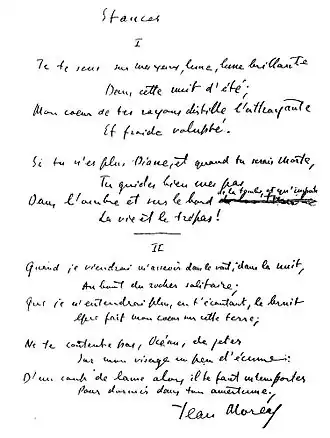 Stances
I
Je te sens sur mes yeux, lune, lune brillante
Dans cette nuit d'été;
Mon coeur de tes rayons distille l'attrayante
Et froide volupté.
Si tu n'es plus Diane, et quand tu serais morte,
Tu guides bien mes pas
de la tombe, et qu'importe
Dans l'ombre et sur le bord
La vie et le trépas!
II
Quand je viendrai m'asseoir dans le vent, dans la nuit,
Au bout du rocher solitaire,
Que je n'entendrai plus, en t'écoutant, le bruit
Que fait mon coeur sur cette terre,
Ne te contente pas, Océan, de jeter
Sur mon visage un peu d'écume:
D'un coup de lame alors il te faut m'emporter
Pour dormir dans ton amertume.
Jean Moréas